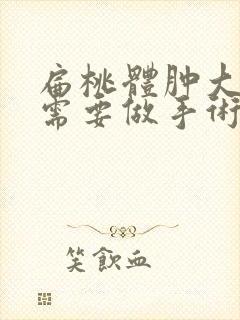 扁桃體肿大
需要做手術
笑飲血